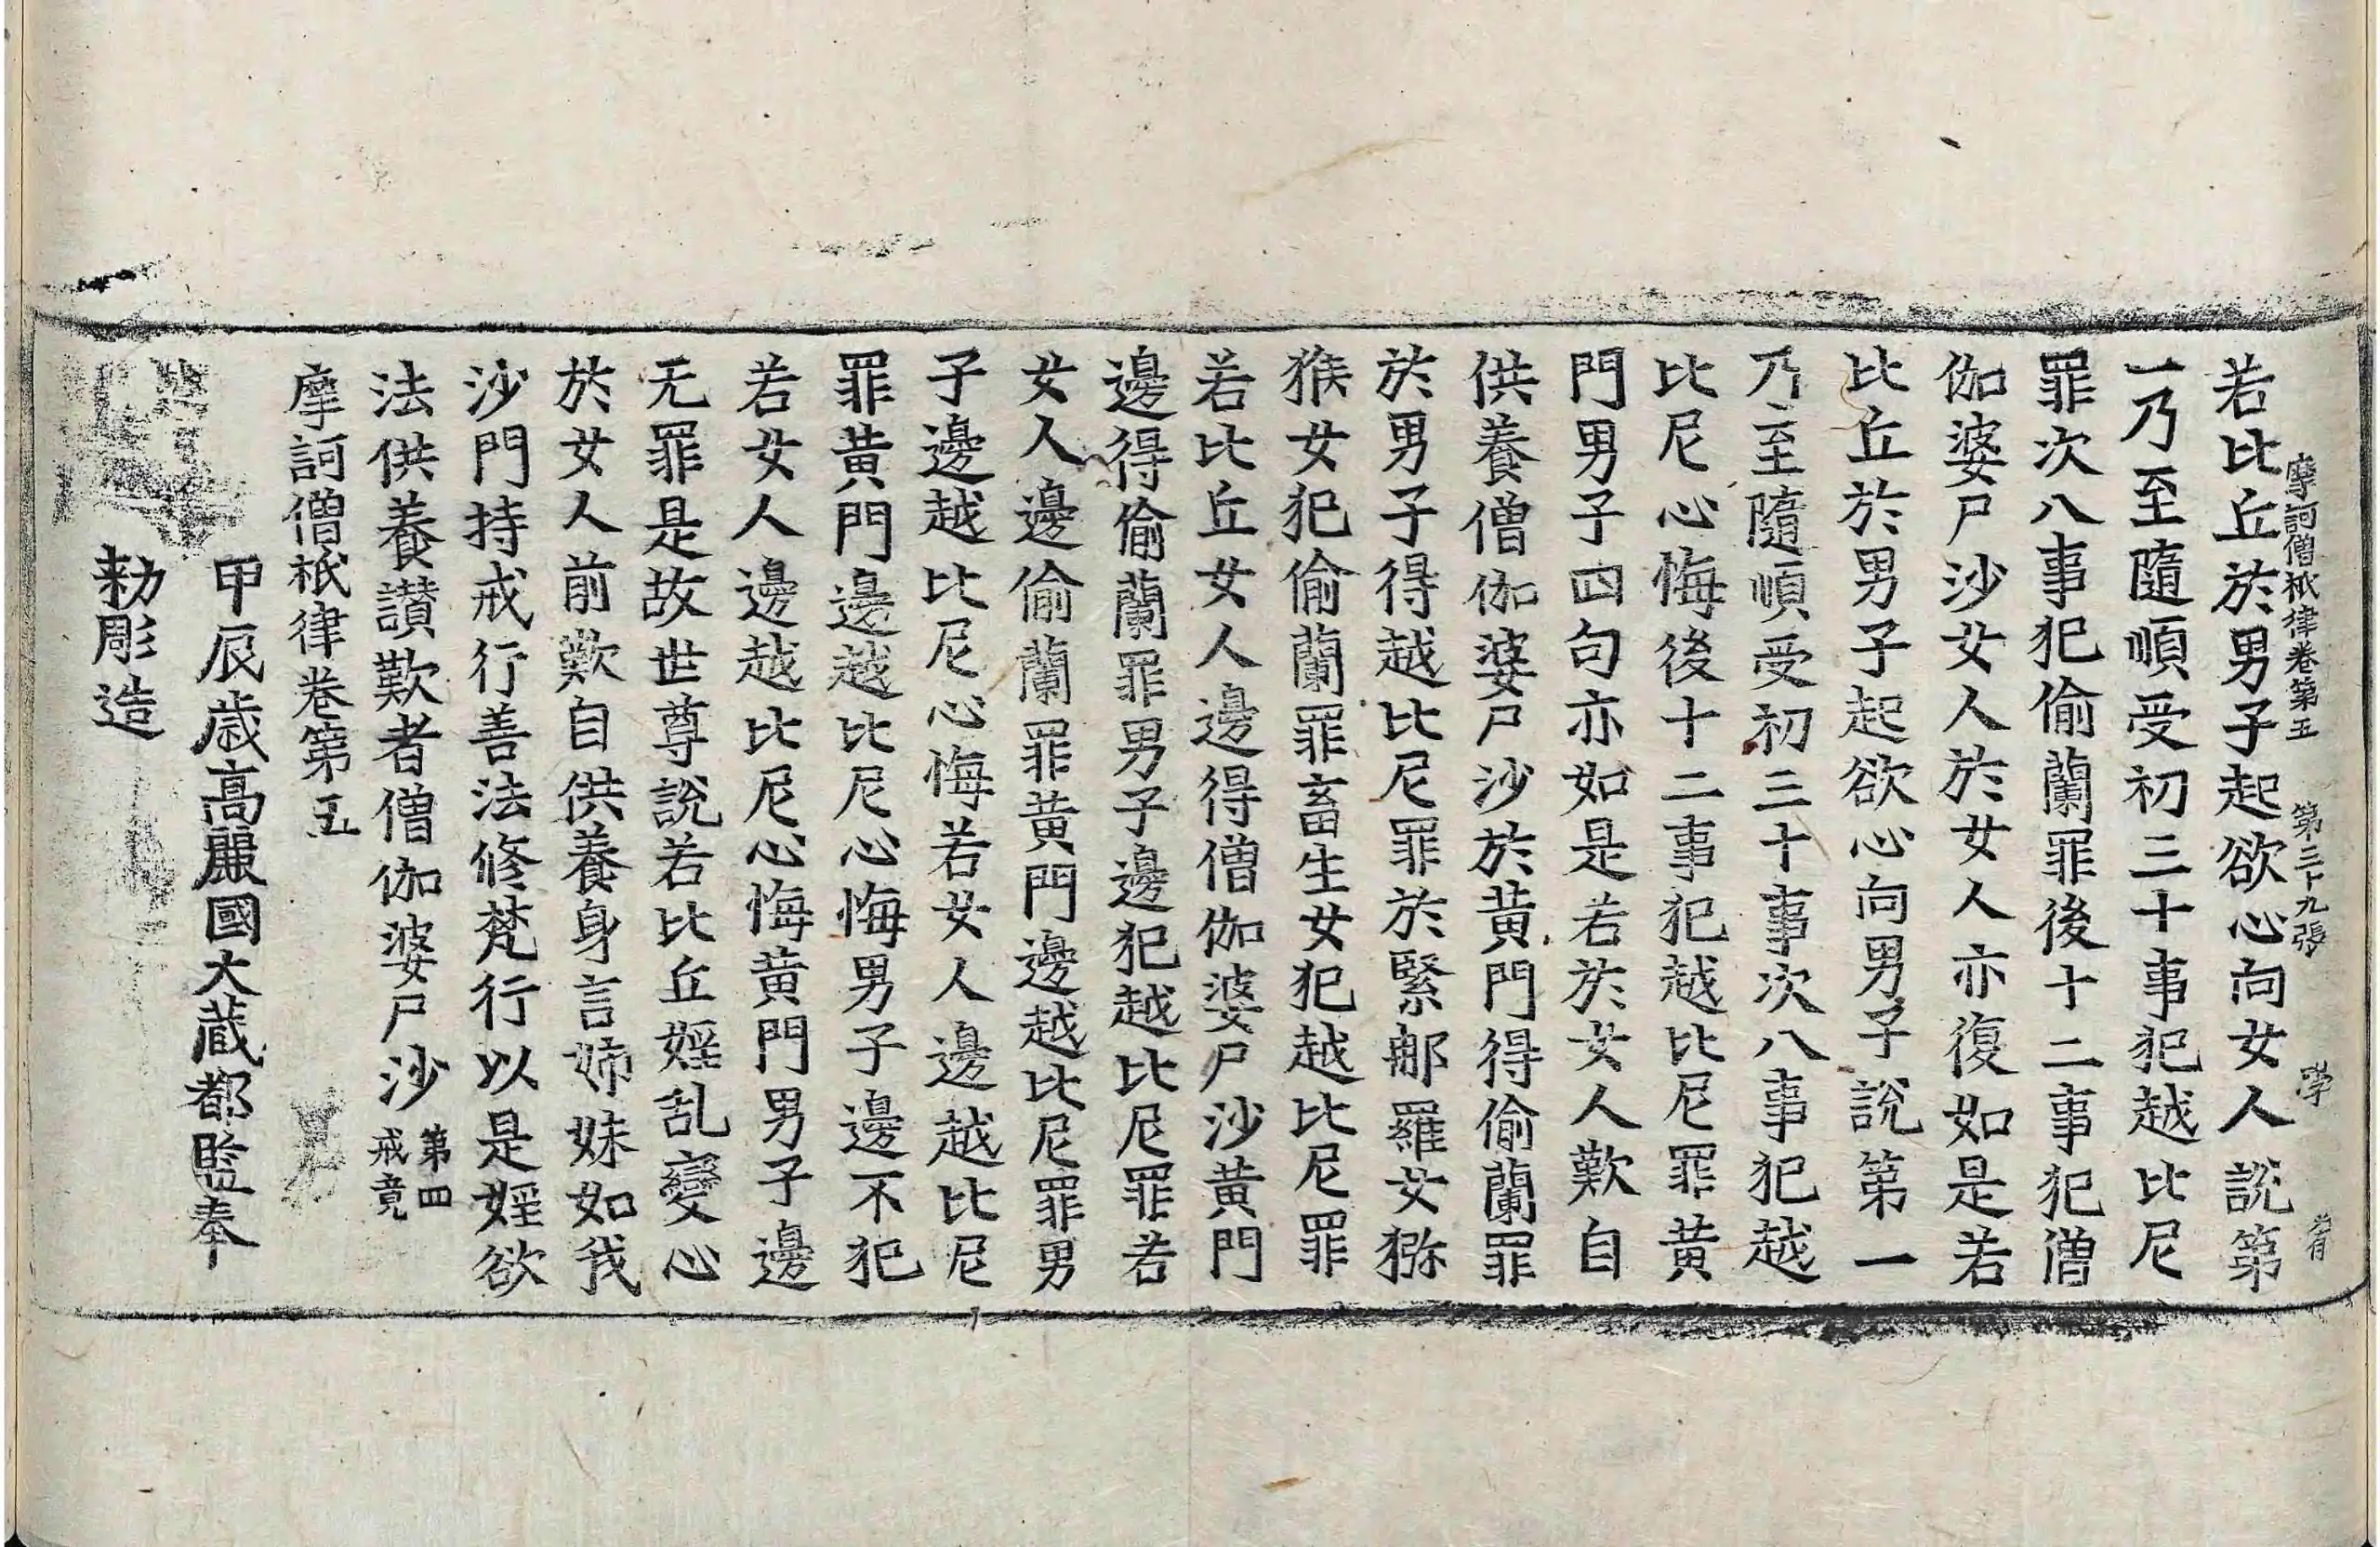 摩訶僧祇律卷第五　第三十九張　學
若比丘於男子起欲心向女人說第
一乃至隨順受初三十事犯越比尼
罪次八事犯偷蘭罪後十二事犯僧
伽婆尸沙女人於女人亦復如是若
比丘於男子起欲心向男子說第一
乃至隨順受初三十事次八事犯越
比尼心悔後十二事犯越比尼罪黃
門男子四句亦如是若於女人歎自
供養僧伽婆尸沙於黃門得偷蘭罪
於男子得越比尼罪於緊那羅女獼
猴女犯偷蘭罪畜生女犯越比尼罪
若比丘女人邊得僧伽婆尸沙黃門
邊得偷蘭罪男子邊犯越比尼罪若
女人邊偷蘭罪黃門邊越比尼罪男
子邊越比尼心悔若女人邊越比尼
罪黃門邊越比尼心悔男子邊不犯
若女人邊越比尼心悔黃門男子邊
无罪是故世尊說若比丘婬乱變心
於女人前歎自供養身言姉妹如我
沙門持戒行善法修梵行以是婬欲
法供養讃歎者僧伽婆尸沙第四戒竟
摩訶僧祇律卷第五
甲辰歳高麗國大藏都監奉
勅彫造